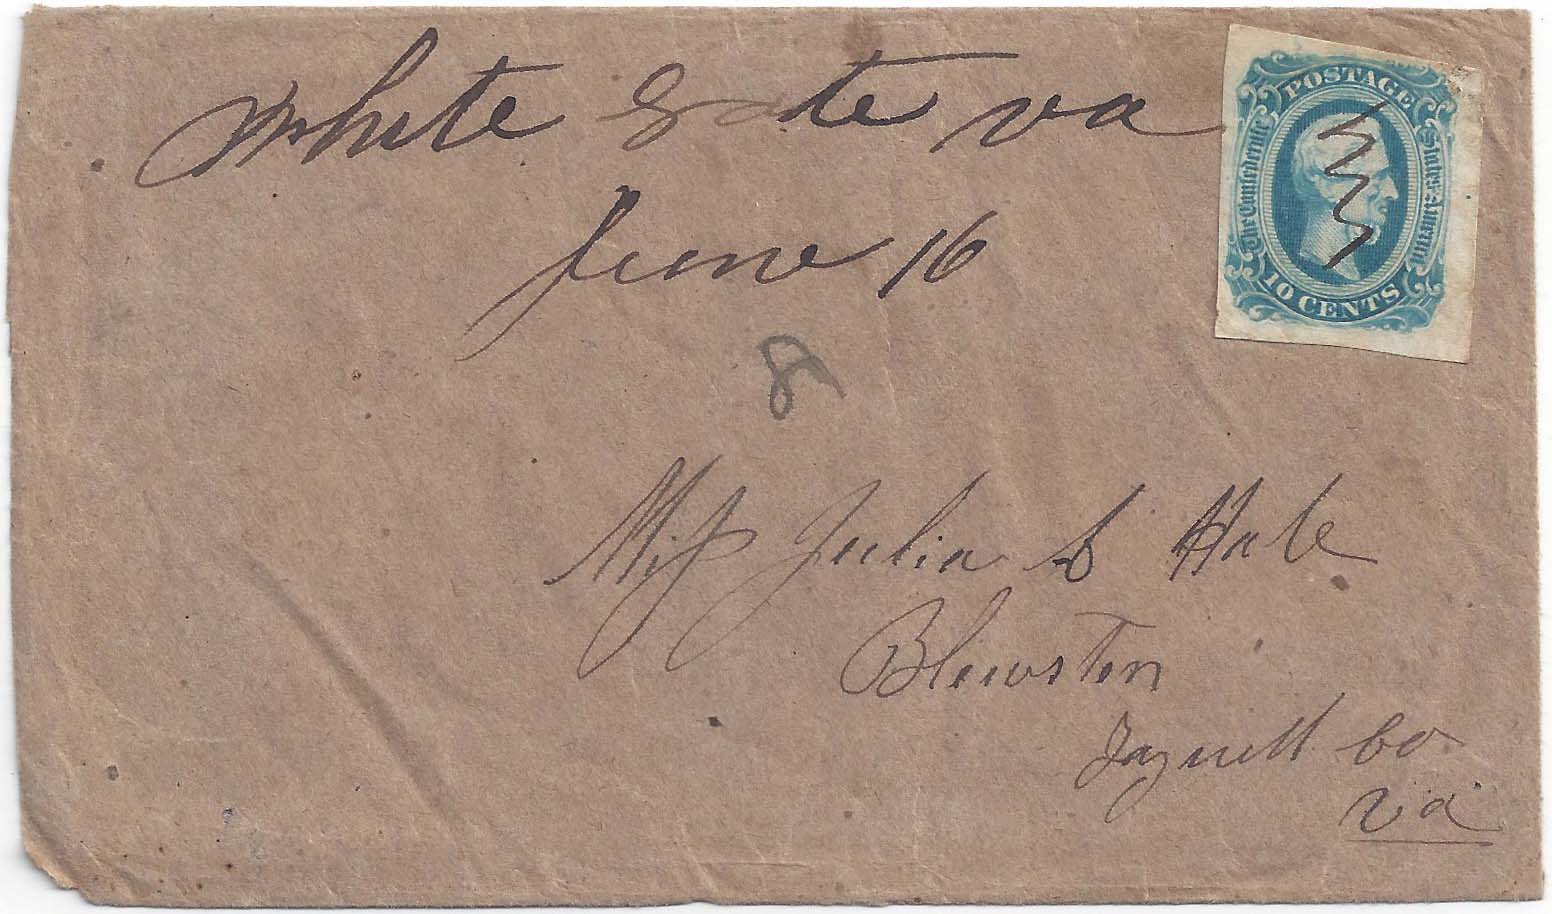 White Gate va
June 16
POSTAGE
The Confederate
States America
10 CENTS
8
Miss Julia Hale
Blewsten
Tazwell Co
va